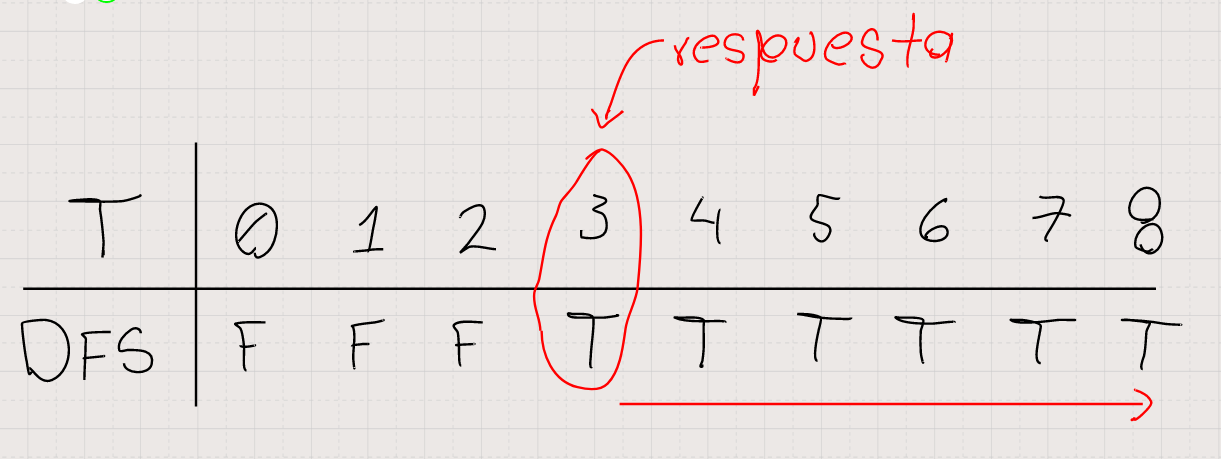 respuesta
T 0 1 2 3 4 5 6 7 8
DFS F F F T T T T T T